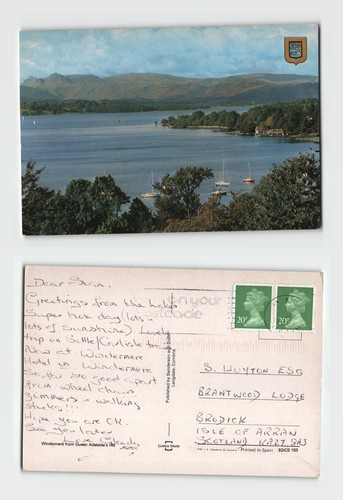 Dear Stuin.
Greetings from the Lakes
Super hot day (lots -
lots of sunshine). Lovely
trip on Settle/Carlisle to
Now at Windermere
Hotel in Windermere
So far so good apart
from wheel chairs
zimmers & walking
sticks!!!
Hope you are OK.
See you later
Love
Windermere from Queen Adelaide's Hill
Published by Sanderson and Dixon
Cumbria
on your
postcode
20P
20P
S. HUYTON ESQ
BRANTWOOD LODGE
BRODICK
ISLE OF ARRAN
SCOTLAND KA27 8AJ
Printed in Spain